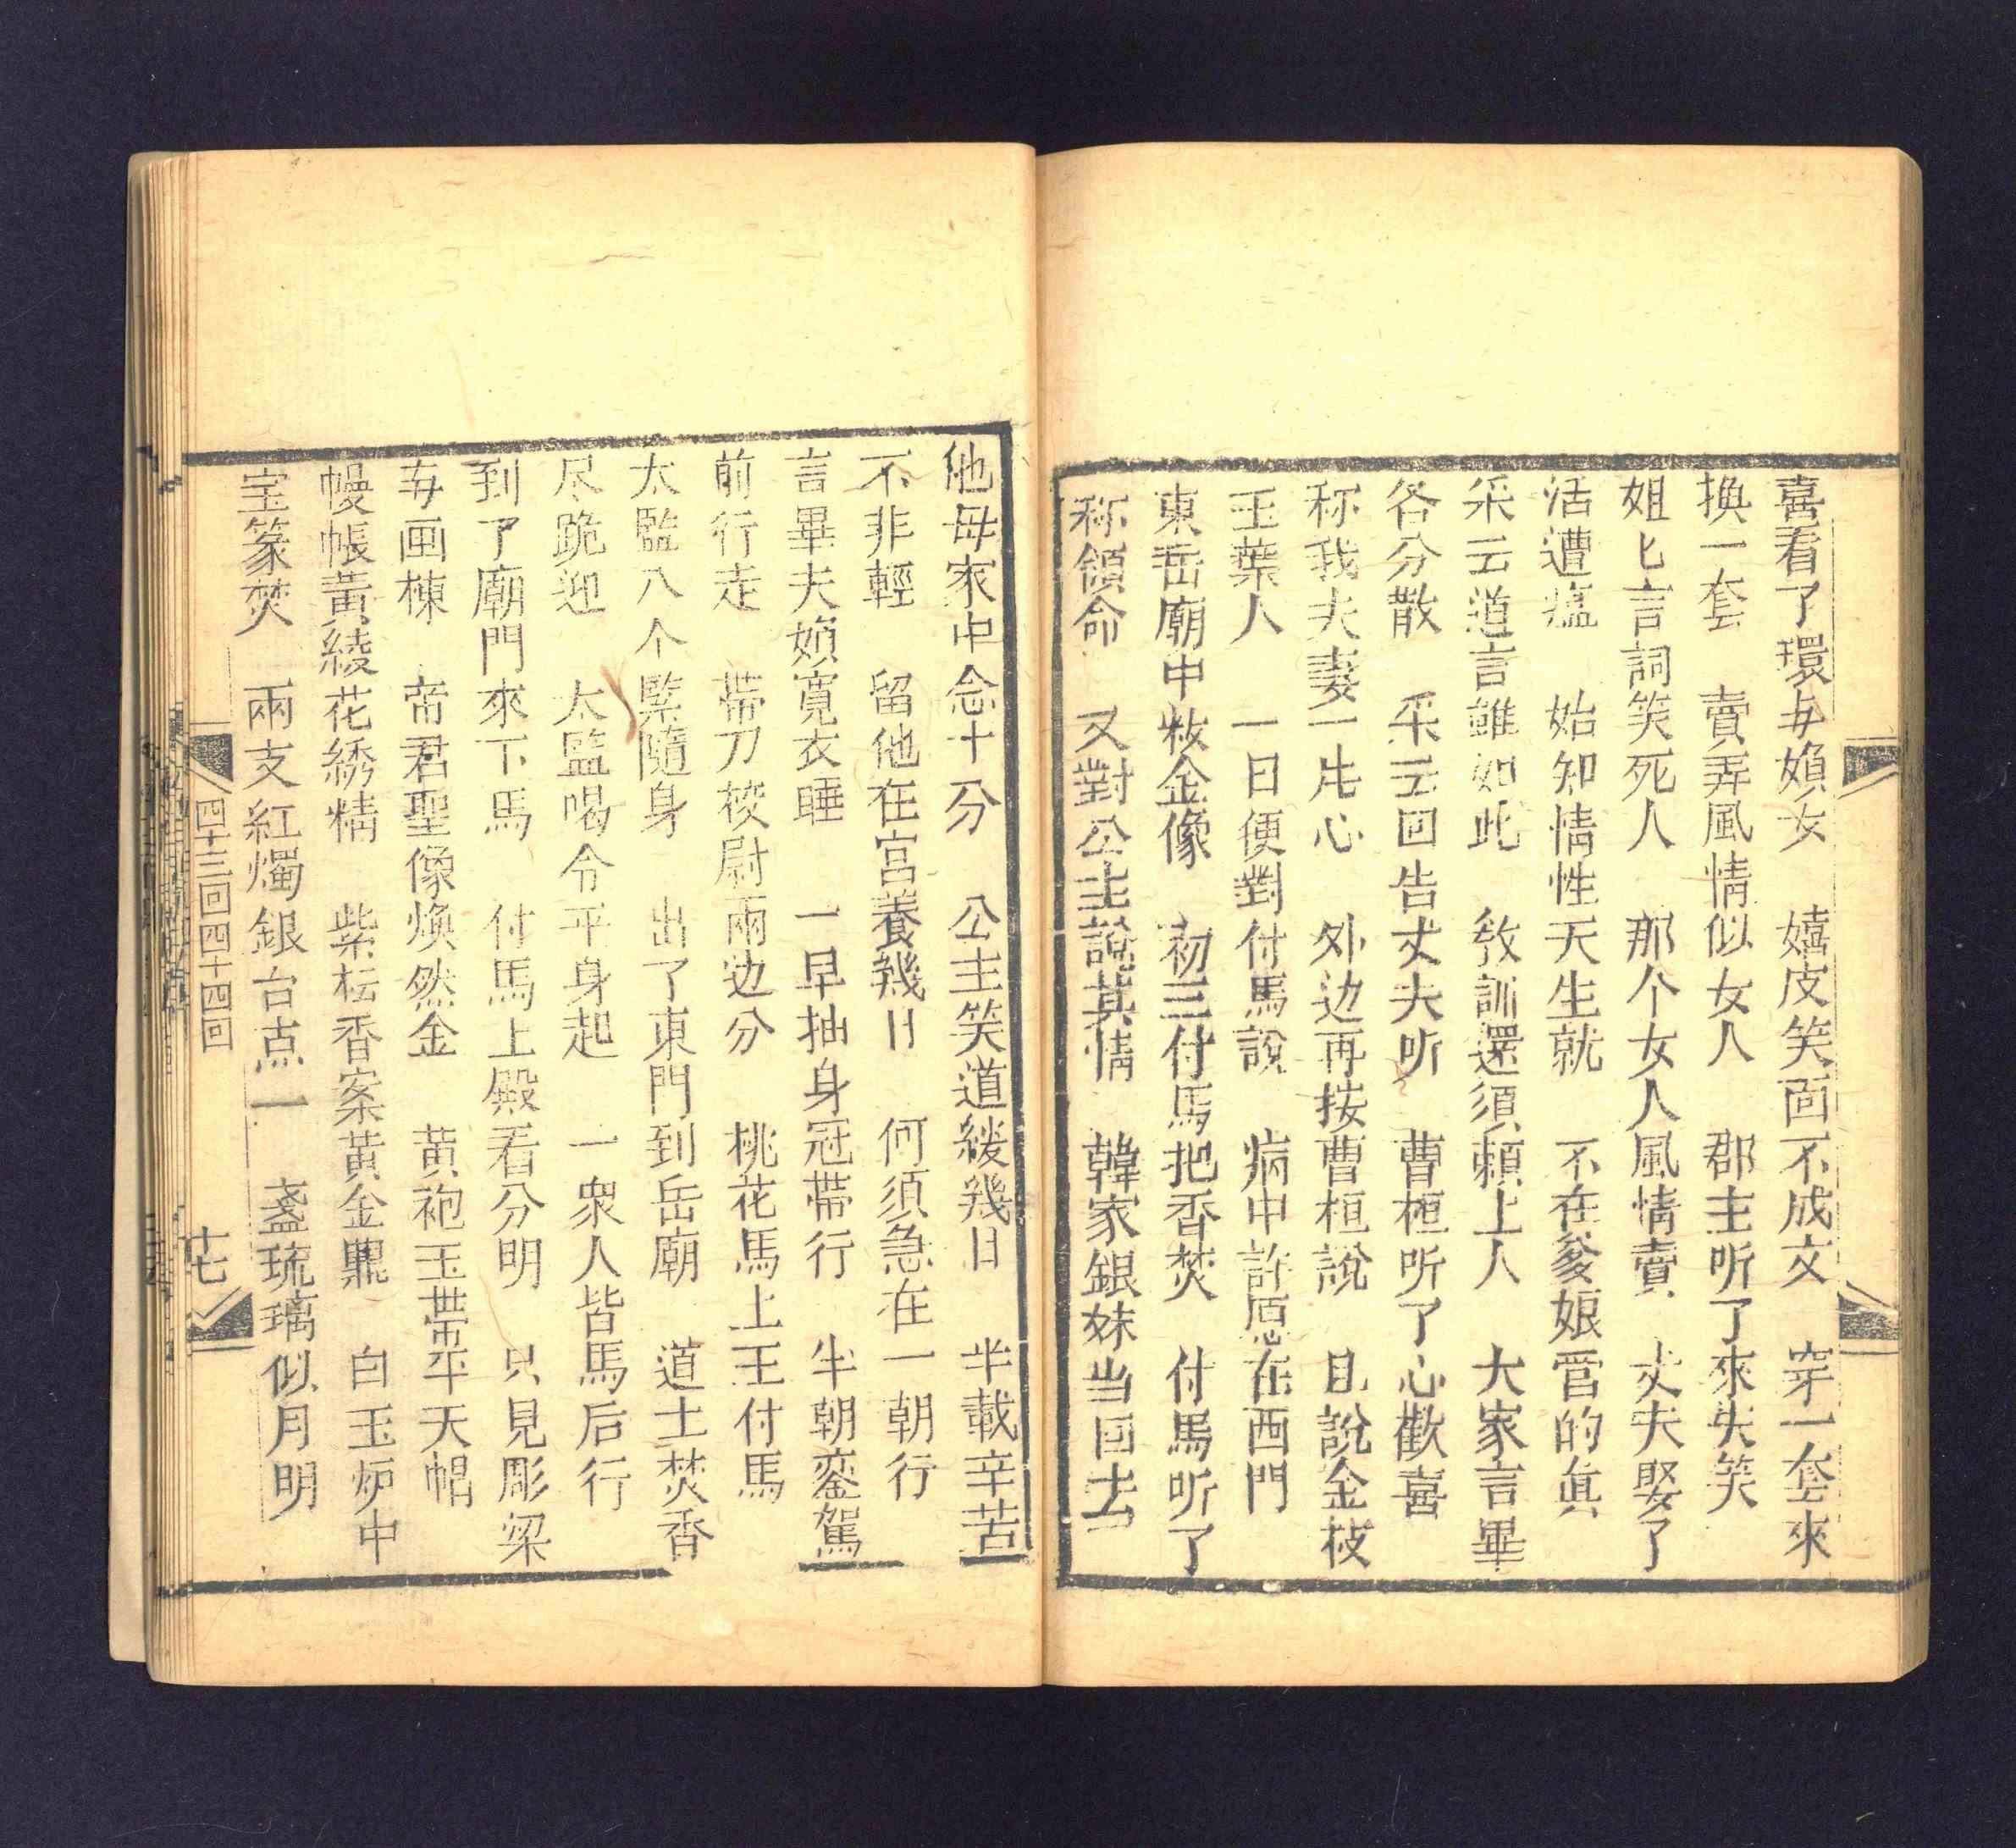 喜看了環与媍女　嬉皮笑面不成文　穿一套來
換一套　賣弄風情似女人　郡主听了來失笑
姐匕言詞笑死人　那个女人風情賣　丈夫娶了
活遭瘟　始知情性天生就　不在爹娘官的眞
采云道言雖如此　敎訓還須頼上人　大家言畢
各分散　采云回告丈夫听　曹桓听了心歡喜
称我夫妻一片心　外边再按曹桓說　且說金枝
玉葉人　一日便對付馬說　病中許愿在西門
東岳廟中粧金像　初三付馬把香焚　付馬听了
称領命　又對公主說其情　韓家銀妹当回去
他母家中念十分　公主笑道緩幾日　半載辛苦
不非輕　留他在宫養幾日　何須急在一朝行
言畢夫媍寛衣睡　一早抽身冠帶行　半朝銮駕
前行走　帶刀校尉兩边分　桃花馬上王付馬
太監八个緊隨身　出了東門到岳廟　道士焚香
尽跪迎　太監喝令平身起　一衆人皆馬后行
到了廟門來下馬　付馬上殿看分明　只見彫梁
与画棟　帝君聖像煥然金　黄袍玉帶平天帽
幔帳黃綾花綉精　紫枟香案黃金鼎　白玉炉中
宝篆焚　兩支紅燭銀台点　一盞琉璃似月明
四十三回四十四回
十七